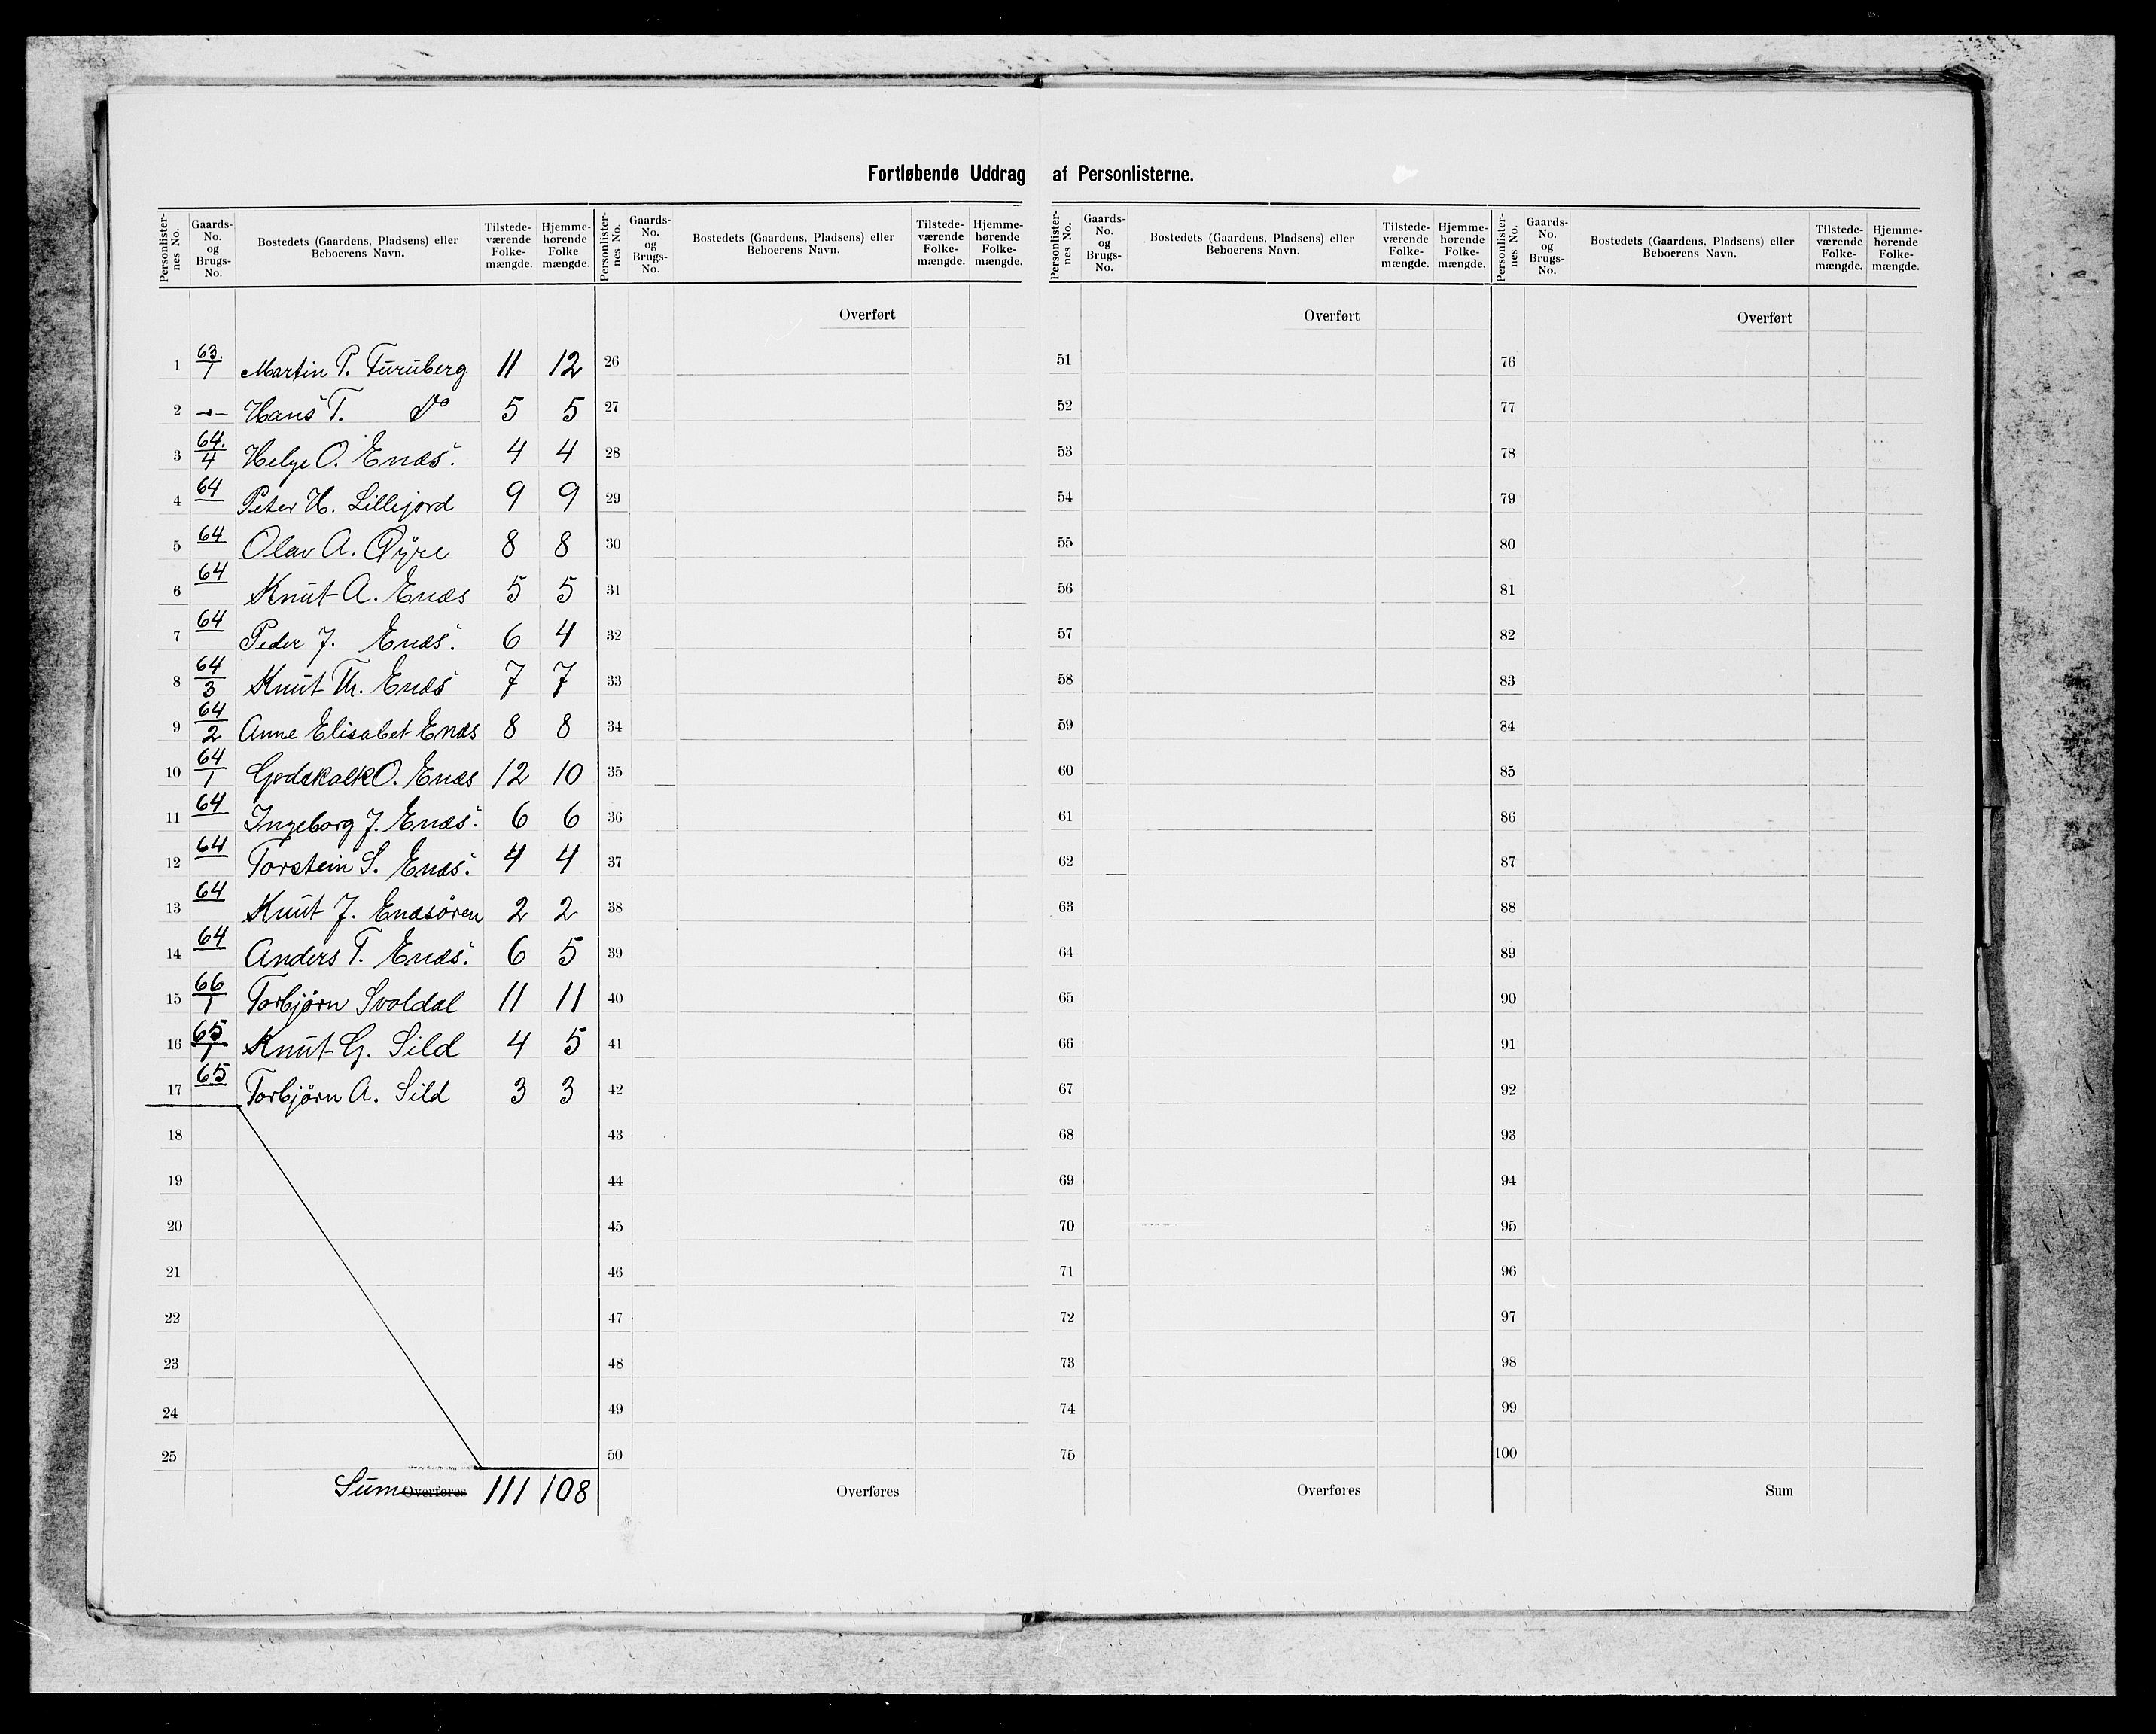 Fortløbende Uddrag af Personlisterne.
Personlister-nes No. Gaards-No. og Brugs-No. Bostedets (Gaardens, Pladsens) eller Beboerens Navn. Tilstede-værende Folke-mængde. Hjemme-hørende Folke mængde.
Personlister-nes No. Gaards-No. og Brugs-No. Bostedets (Gaardens, Pladsens) eller Beboerens Navn. Tilstede-værende Folke-mængde. Hjemme-hørende Folke-mængde.
Personlister-nes No. Gaards-No. og Brugs-No. Bostedets (Gaardens, Pladsens) eller Beboerens Navn. Tilstede-værende Folke-mængde. Hjemme-hørende Folke-mængde.
Personlister-nes No. Gaards-No. og Brugs-No. Bostedets (Gaardens, Pladsens) eller Beboerens Navn. Tilstede-værende Folke-mængde. Hjemme-hørende Folke-mængde.
Overført Overført Overført
1 63./1 Martin P. Furuberg 11 12 26 51 76
2 -"- Hans T. do 5 5 27 52 77
3 64./4 Helge O. Enæs. 4 4 28 53 78
4 64 Peter H. Lillejord 9 9 29 54 79
5 64 Olav A. Øyre 8 8 30 55 80
6 64 Knut A. Enæs 5 5 31 56 81
7 64 Peder J. Enæs. 6 4 32 57 82
8 64/3 Knut Th. Enæs 7 7 33 58 83
9 64/2 Anne Elisabet Enæs 8 8 34 59 84
10 64/1 Godskalk O. Enæs 12 10 35 60 85
11 64 Ingeborg J. Enæs. 6 6 36 61 86
12 64 Torstein S. Enæs. 4 4 37 62 87
13 64 Knut J. Enæsören 2 2 38 63 88
14 64 Anders T. Enæs. 6 5 39 64 89
15 66/1 Torbjørn Svoldal 11 11 40 65 90
16 65/1 Knut G. Sild 4 5 41 66 91
17 65 Torbjørn A. Sild 3 3 42 67 92
18 43 68 93
19 44 69 94
20 45 70 95
21 46 71 96
22 47 72 97
23 48 73 98
24 49 74 99
25 50 75 100
Sum Overføres 111 108 Overføres Overføres Sum